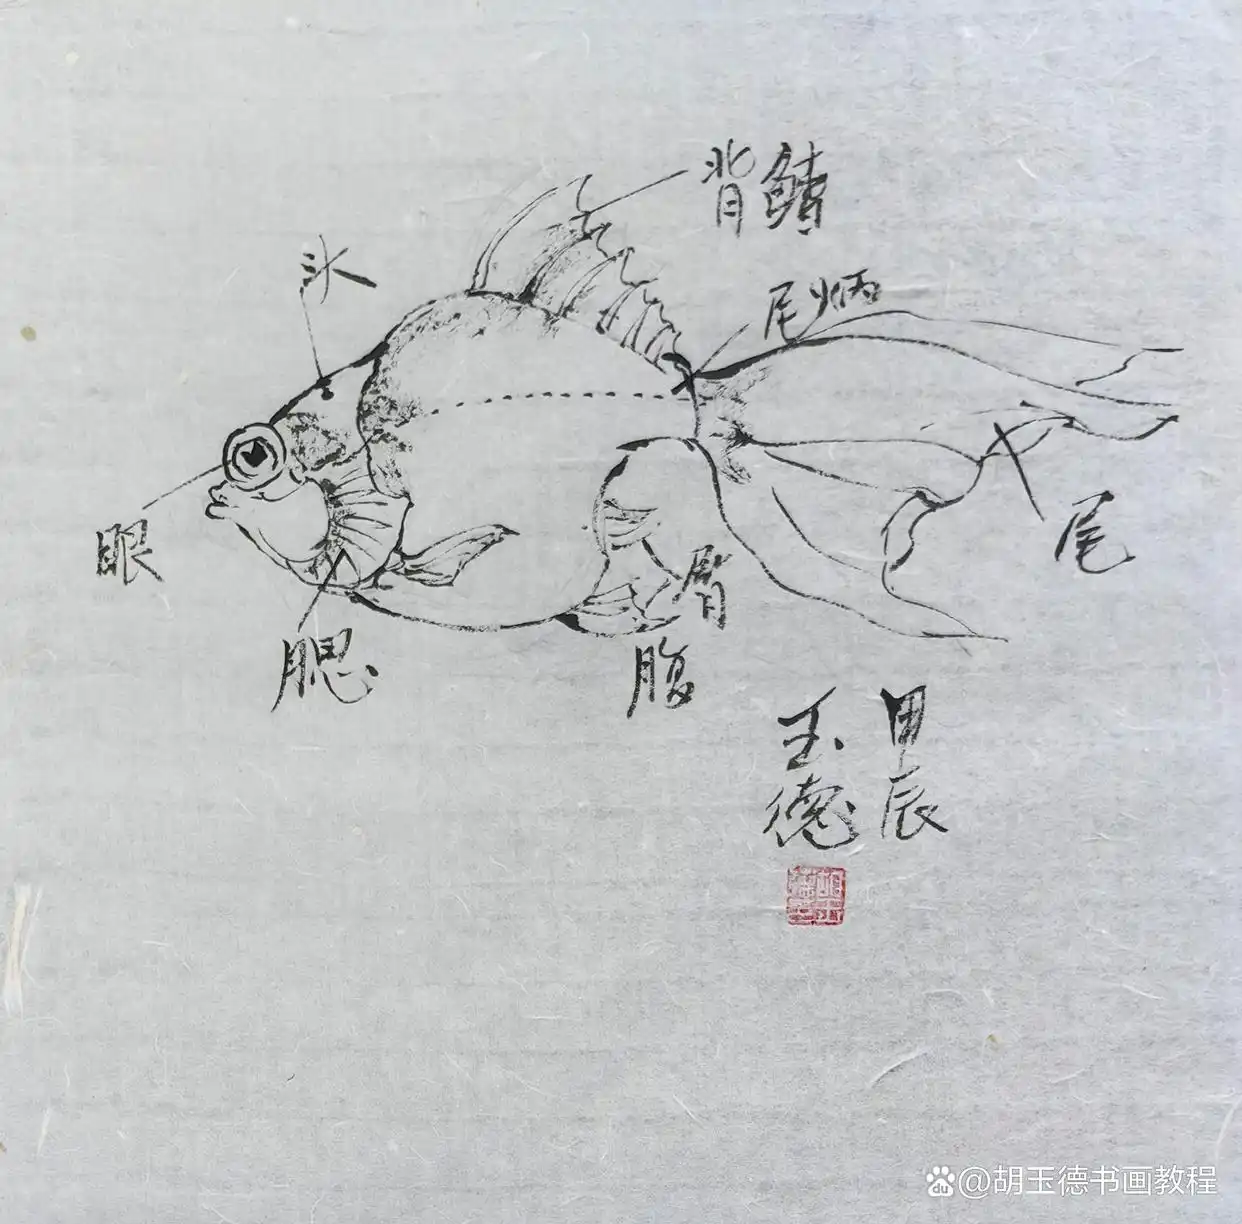 背鳍
头
尾炳
眼
尾
臀
腮
腹
甲辰
玉德
@胡玉德书画教程